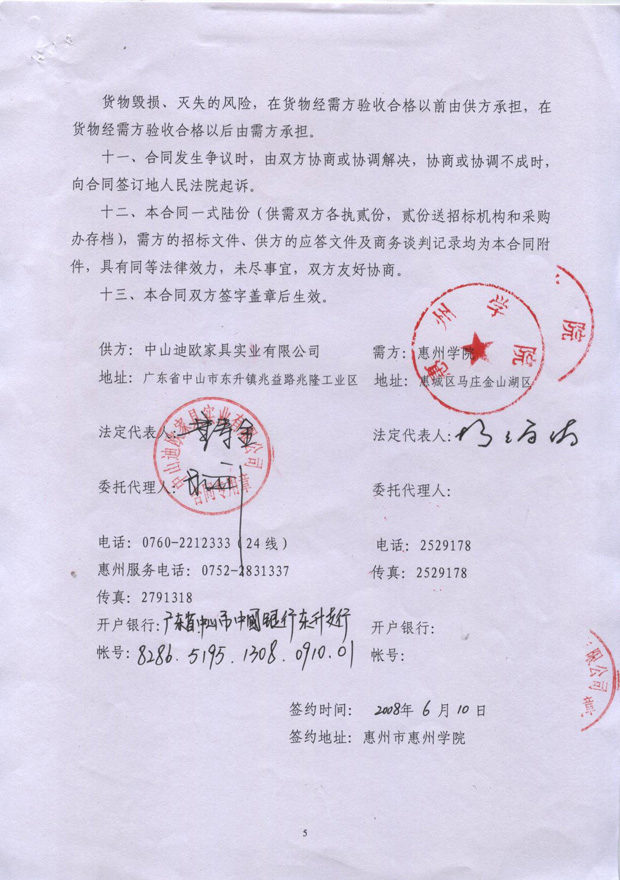 货物毁损、灭失的风险，在货物经需方验收合格以前由供方承担，在
货物经需方验收合格以后由需方承担。
十一、合同发生争议时，由双方协商或协调解决，协商或协调不成时，
向合同签订地人民法院起诉。
十二、本合同一式陆份（供需双方各执贰份，贰份送招标机构和采购
办存档），需方的招标文件、供方的应答文件及商务谈判记录均为本合同附
件，具有同等法律效力，未尽事宜，双方友好协商。
十三、本合同双方签字盖章后生效。
供方：中山迪欧家具实业有限公司
需方：惠州学院
惠州学院
院
地址：广东省中山市东升镇兆益路兆隆工业区
地址：惠城区马庄金山湖区
法定代表人：
法定代表人：
中山迪欧家具实业有限公司
合同专用章
委托代理人：
委托代理人：
电话：0760-2212333（24线）
电话：2529178
惠州服务电话：0752-2831337
传真：2529178
传真：2791318
开户银行：广东省中山市中國銀行东升支行
开户银行：
帐号：8286.5195.1308.0910.01
帐号：
限公司
章
签约时间：2008年6月10日
签约地址：惠州市惠州学院
5